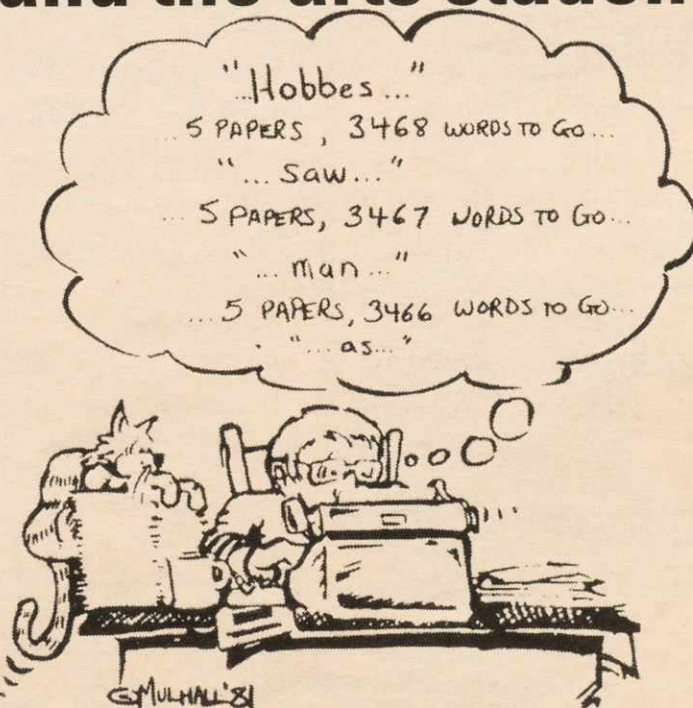 and the arts studen
"...Hobbes..."
...5 PAPERS, 3468 WORDS TO GO...
"...saw..."
...5 PAPERS, 3467 WORDS TO GO...
"...man..."
...5 PAPERS, 3466 WORDS TO GO...
"...as..."
G.MULHALL '81